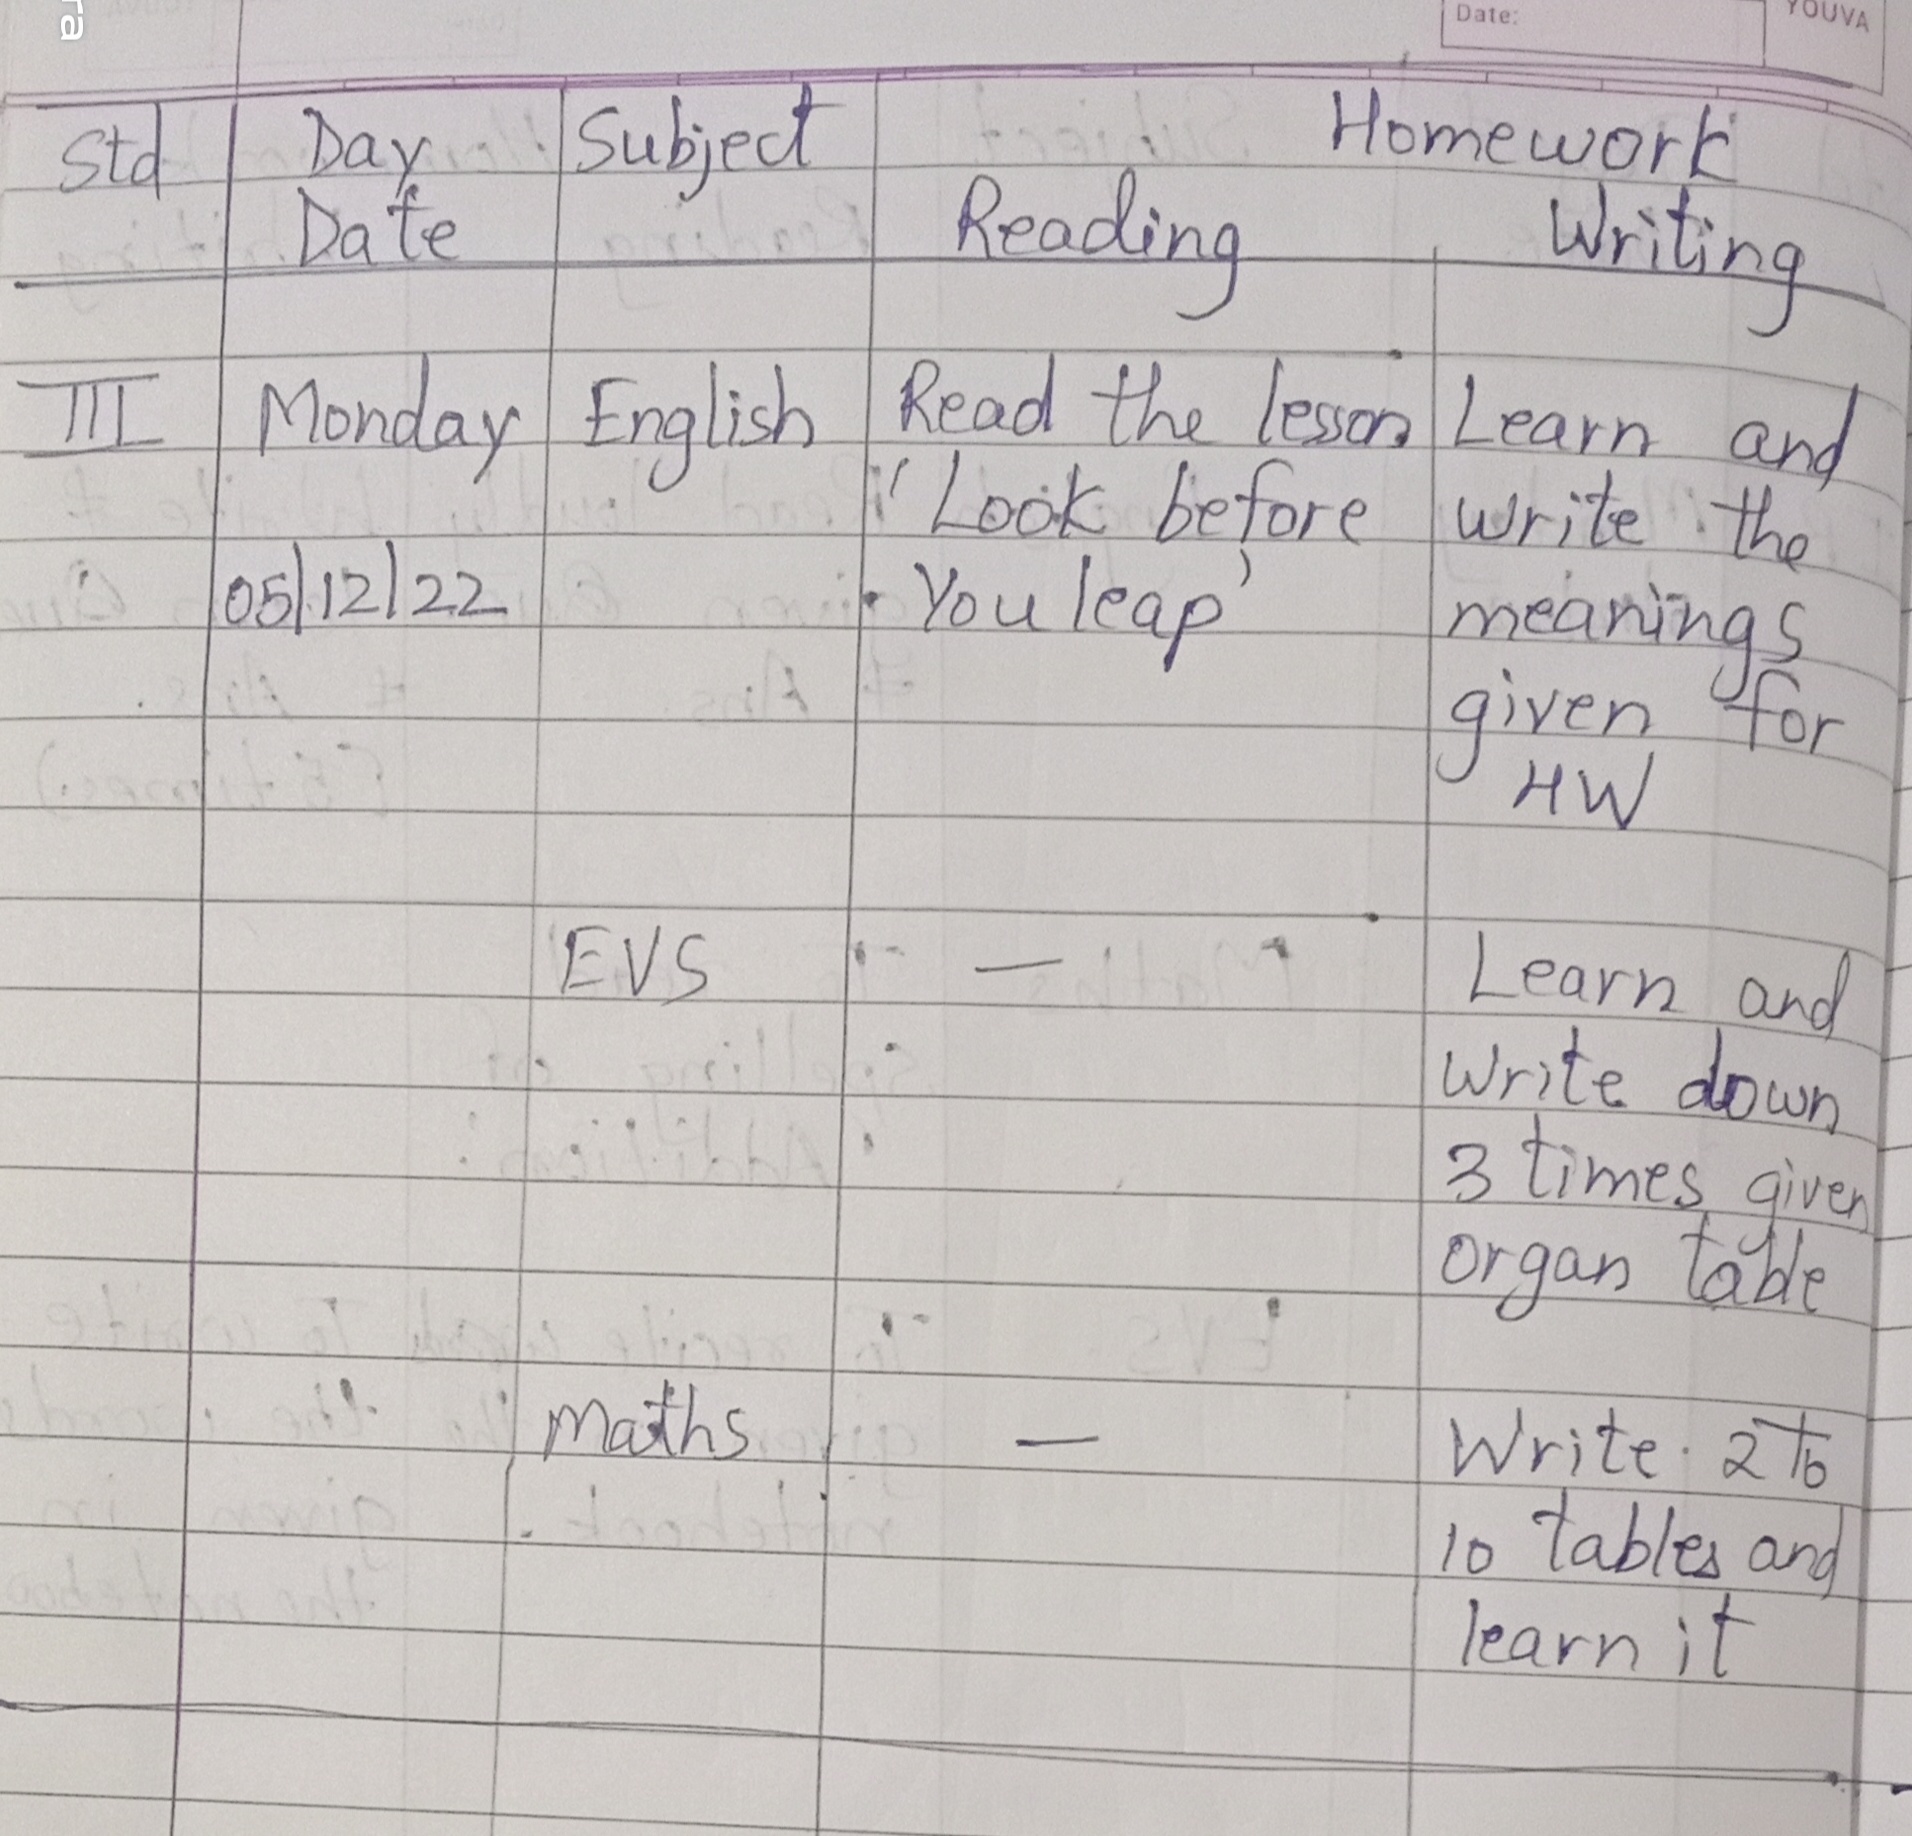 ra
Date:
YOUVA
Std Day Subject Homework
Date Reading Writing
III Monday English Read the lesson Learn and
"Look before write the
05/12/22 You leap' meanings
given for
HW
EVS — Learn and
Write down
3 times given
organ table
Maths — Write 2 to
10 tables and
learn it